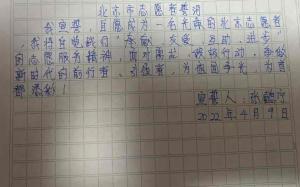 北京市志愿者誓词
我宣誓：自愿成为一名光荣的北京志愿者
，我将自觉践行"奉献、友爱、互助、进步"
的志愿服务精神，面对需要，积极行动，争做
新时代的前行者、引领者，为祖国争光，为首
都添彩！
宣誓人：张
2022年4月9日